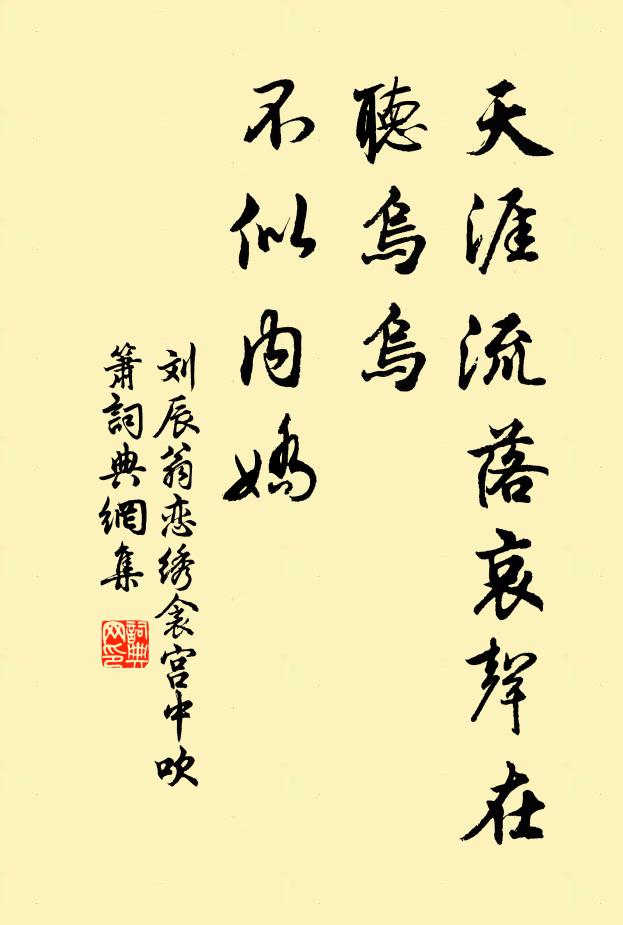 天涯流落哀聲在
聽烏烏
不似内嬌
刘辰翁恋绣衾宫中吹
箫詞典網集
詞典
网印